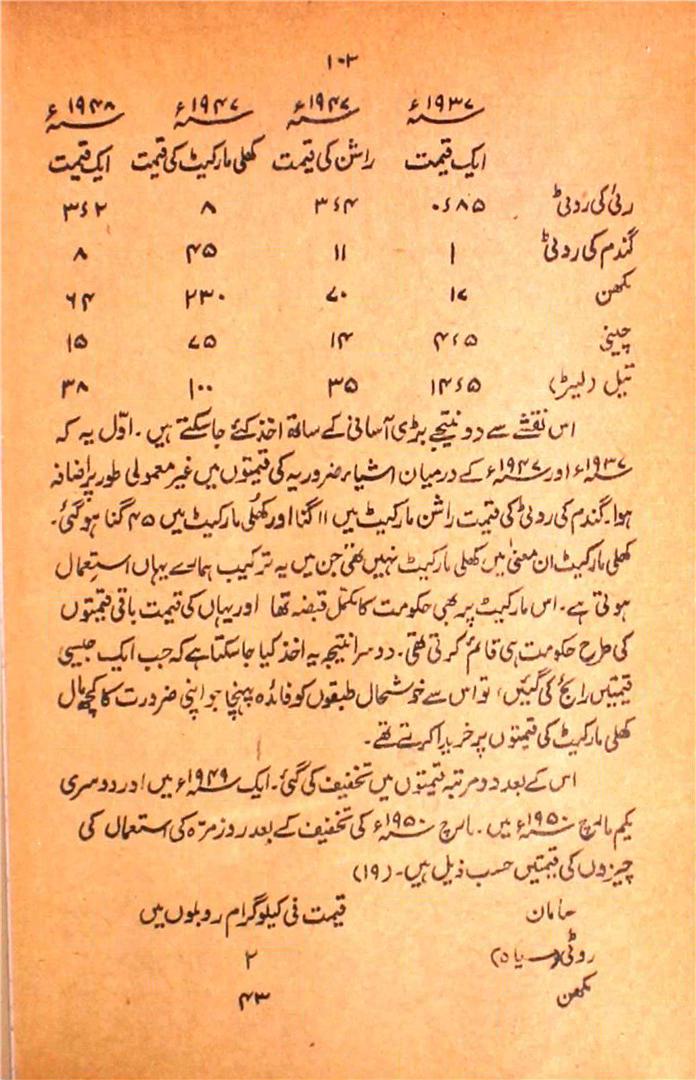 ۱۰۳
۱۹۳۷ء ۱۹۴۷ء ۱۹۴۷ء ۱۹۴۸ء
ایک قیمت راشن کی قیمت کھلی مارکیٹ کی قیمت ایک قیمت
رئی کی روٹی ۰ء۸۵ ۳ء۴ ۸ ۳ء۲
گندم کی روٹی ۱ ۱۱ ۴۵ ۸
مکھن ۱۷ ۷۰ ۲۳۰ ۶۴
چینی ۴ء۵ ۱۴ ۷۵ ۱۵
تیل (لیٹر) ۱۴ء۵ ۳۵ ۱۰۰ ۳۸
اس نقشے سے دو نتیجے بڑی آسانی کے ساتھ اخذ کئے جاسکتے ہیں۔ اوّل یہ کہ
۱۹۳۷ء اور ۱۹۴۷ء کے درمیان اشیاء ضروریہ کی قیمتوں میں غیر معمولی طور پر اضافہ
ہوا۔ گندم کی روٹی کی قیمت راشن مارکیٹ میں ۱۱ گنا اور کھلی مارکیٹ میں ۴۵ گنا ہوگئی۔
کھلی مارکیٹ ان معنیٰ میں کھلی مارکیٹ نہیں تھی جن میں یہ ترکیب ہمارے یہاں استعمال
ہوتی ہے۔ اس مارکیٹ پر بھی حکومت کا مکمل قبضہ تھا اور یہاں کی قیمت باقی قیمتوں
کی طرح حکومت ہی قائم کرتی تھی۔ دوسرا نتیجہ یہ اخذ کیا جاسکتا ہے کہ جب ایک جیسی
قیمتیں رائج کی گئیں، تو اس سے خوشحال طبقوں کو فائدہ پہنچا جو اپنی ضرورت کا کچھ مال
کھلی مارکیٹ کی قیمتوں پر خریدا کرتے تھے۔
اس کے بعد دو مرتبہ قیمتوں میں تخفیف کی گئی۔ ایک ۱۹۴۹ء میں اور دوسری
یکم مارچ ۱۹۵۰ء میں۔ مارچ ۱۹۵۰ء کی تخفیف کے بعد روزمرّہ کی استعمال کی
چیزوں کی قیمتیں حسب ذیل ہیں۔ (۱۹)
سامان قیمت فی کیلوگرام روبلوں میں
روٹی ۲
مکھن ۴۳